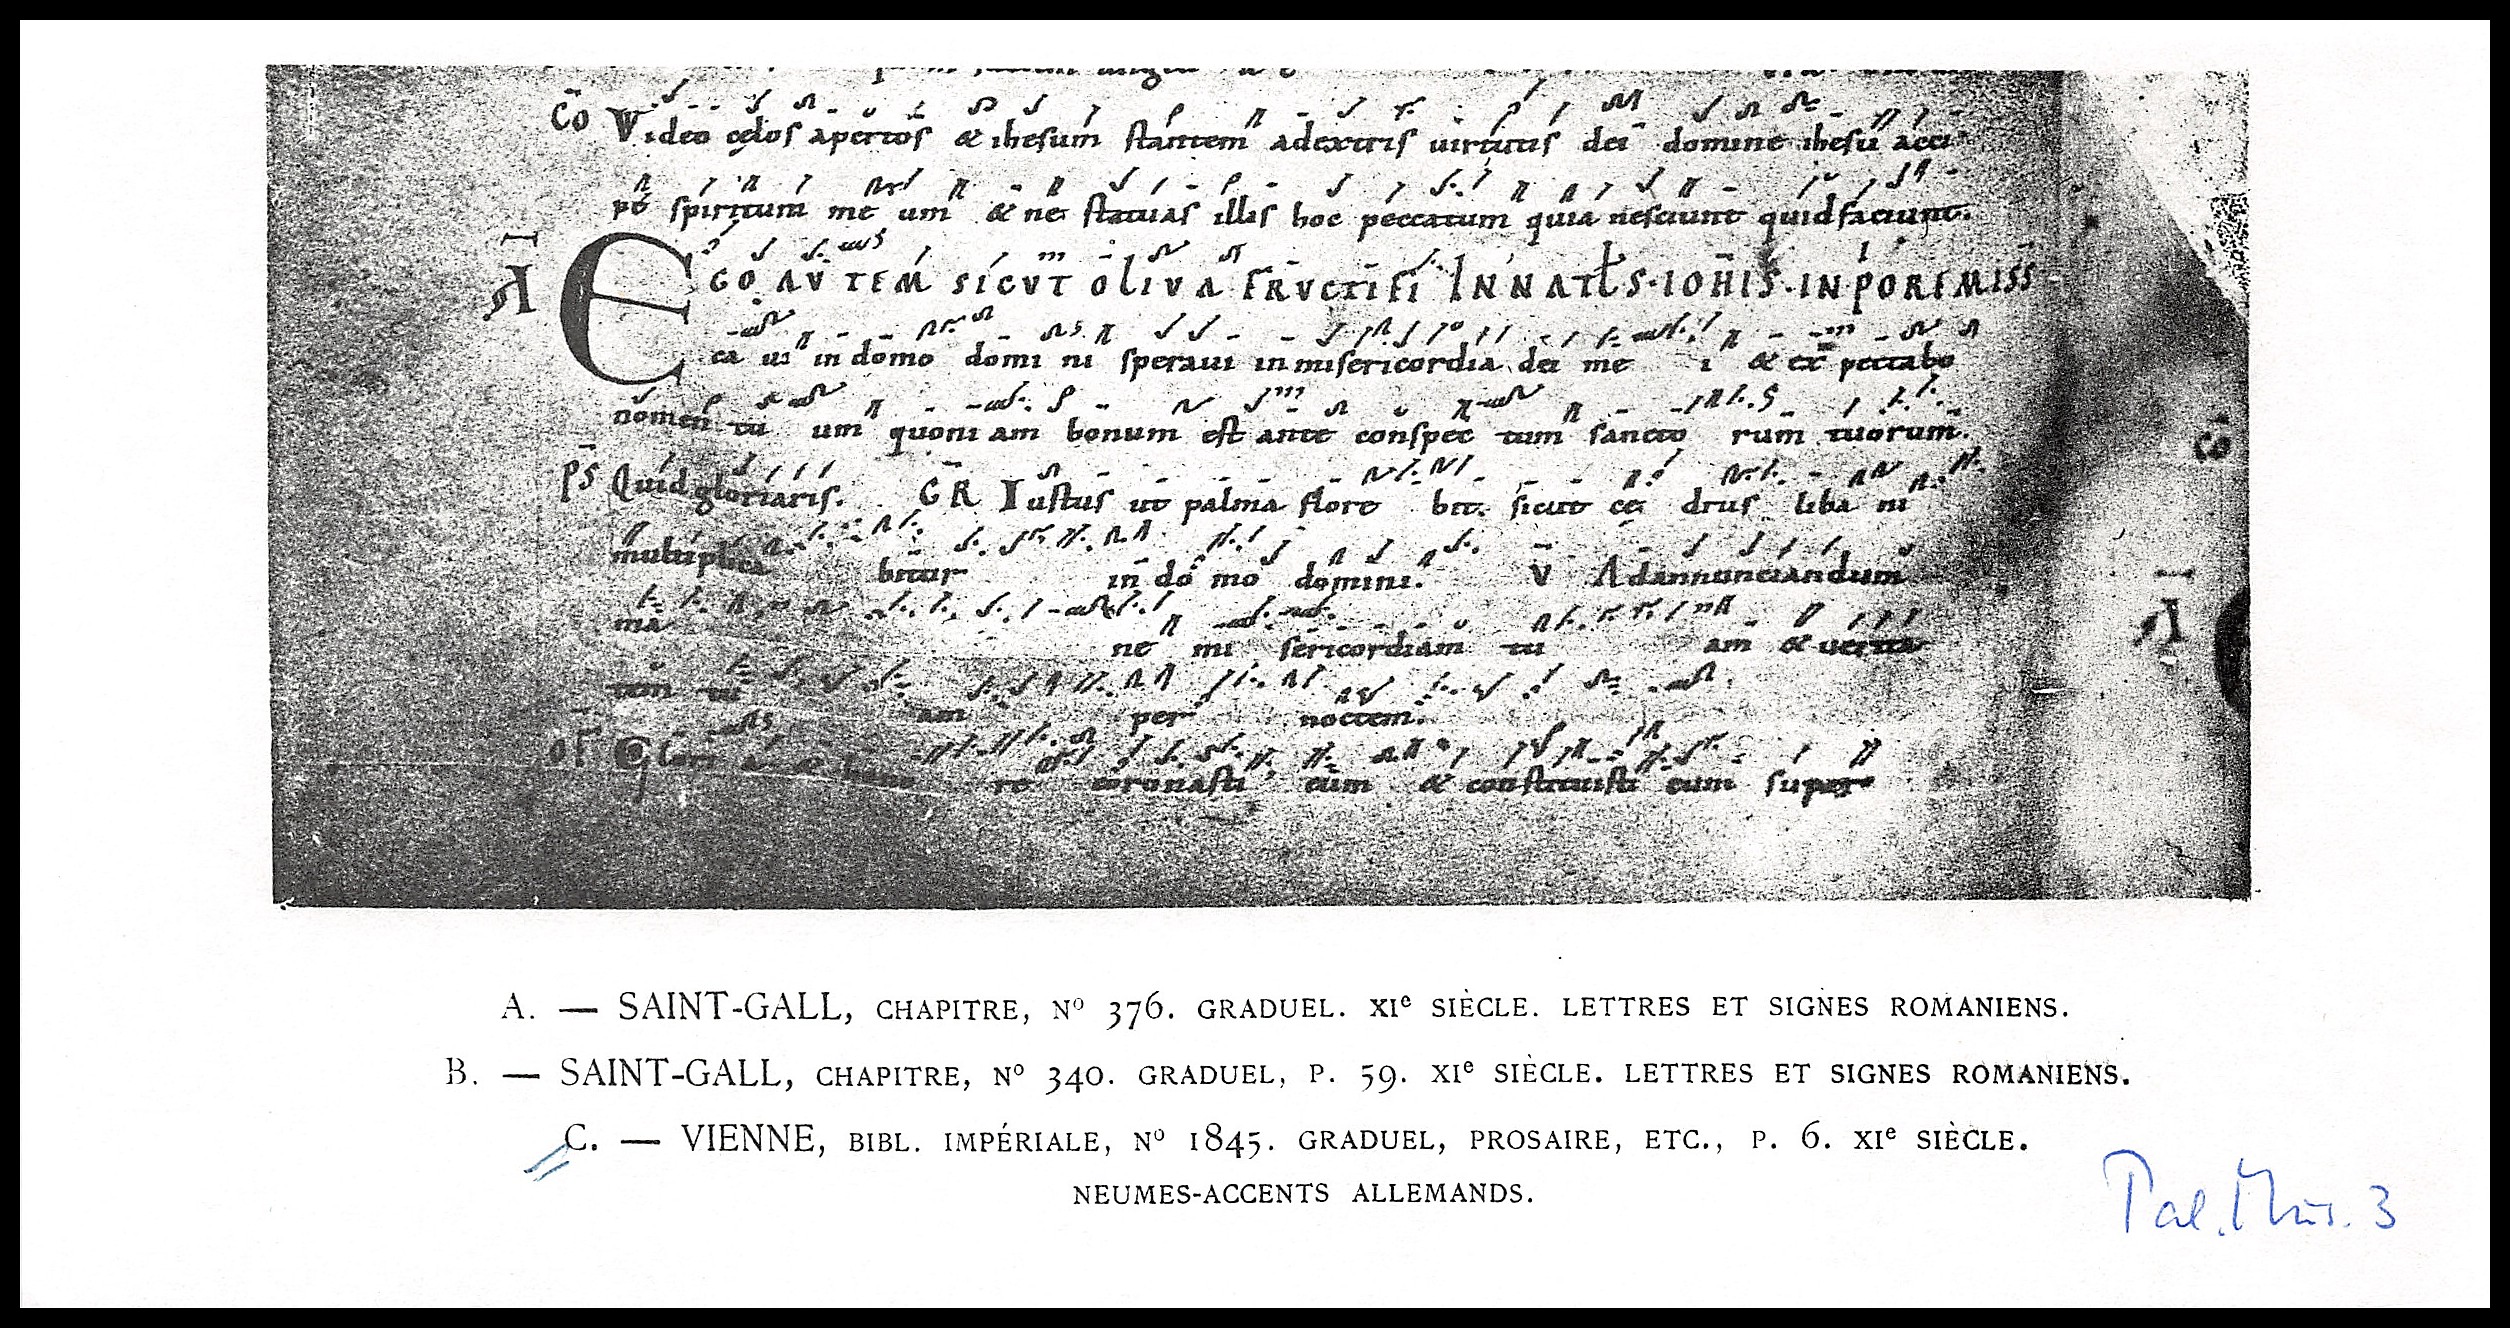 C̄o Video cęlos apertos & ihesum stantem adextris uirtutis dei domine ihesu acci
pe spiritum me um & ne statuas illis hoc peccatum quia nesciunt quid faciunt.
A EGO AVTEM SICVT OLIVA FRVCTIFI IN NAT̄LS · IOH̄IS · IN PORĪ MISS̄
ca ui in domo domi ni speraui in misericordia dei me i & ex pectabo
nomen tu um quoni am bonum est ante conspec tum sancto rum tuorum.
C̄o
P̄S Quid gloriaris. ḠR Iustus ut palma flore bit. sicut ce drus liba ni
multiplica bitur in do mo domini. V̄ Adannunciandum
A
ma ne mi sericordiam tu am & uerita
tem tu am per noctem.
OF̄ Glori a & hono re coronasti eum & constituisti eum super
A. — SAINT-GALL, CHAPITRE, Nº 376. GRADUEL. XIᵉ SIÈCLE. LETTRES ET SIGNES ROMANIENS.
B. — SAINT-GALL, CHAPITRE, Nº 340. GRADUEL, P. 59. XIᵉ SIÈCLE. LETTRES ET SIGNES ROMANIENS.
C. — VIENNE, BIBL. IMPÉRIALE, Nº 1845. GRADUEL, PROSAIRE, ETC., P. 6. XIᵉ SIÈCLE.
NEUMES-ACCENTS ALLEMANDS.
Pal. Mus. 3